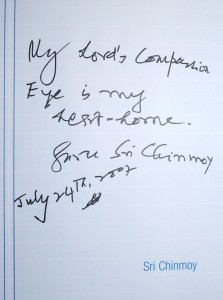 My Lord's Compassion
Eye is my
heart-home.
Guru Sri Chinmoy
July 24TH, 2007
Sri Chinmoy